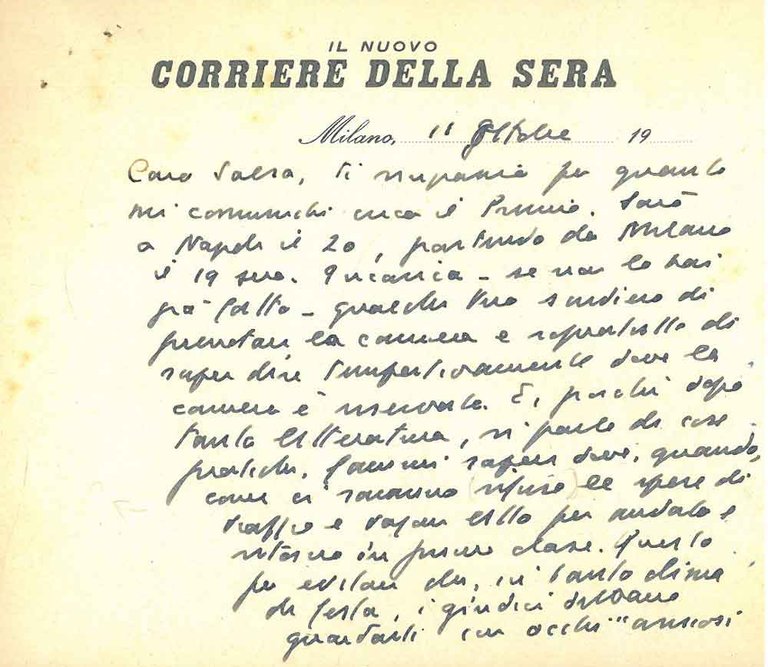 IL NUOVO
CORRIERE DELLA SERA
Milano, 11 Ottobre 19
Caro Salsa, ti ringrazio per quanto
mi comunichi circa il Premio. Sarò
a Napoli il 20, partendo da Milano
il 19 sera. Incarica - se non lo hai
già fatto - qualche tuo scudiero di
prenotare la camera e soprattutto di
saper dire tempestivamente dove la
camera è riservata. E, poiché dopo
tanta letteratura, si parla di cose
pratiche, fammi sapere dove, quando,
come ci saranno (rifuse) le spese di
viaggio e vagon letto per andata e
ritorno in prima classe. Questo
per evitare che, in tanto clima
di festa, i giudici debbano
guardarti con occhi "ansiosi